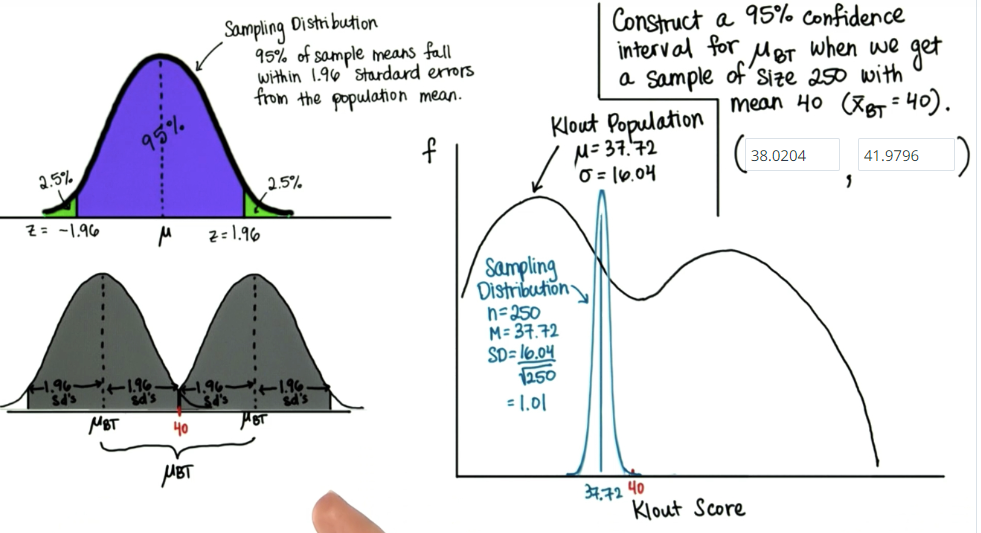 Sampling Distribution
95% of sample means fall
within 1.96 standard errors
from the population mean.
95%
2.5%
2.5%
Z = -1.96
μ
Z = 1.96
1.96 sd's
1.96 sd's
1.96 sd's
1.96 sd's
μBT
40
μBT
μBT
Construct a 95% confidence
interval for μBT when we get
a sample of size 250 with
mean 40 (x̄BT = 40).
(38.0204 , 41.9796)
Klout Population
μ = 37.72
σ = 16.04
f
Sampling
Distribution
n = 250
M = 37.72
SD = 16.04
√250
= 1.01
37.72 40
Klout Score